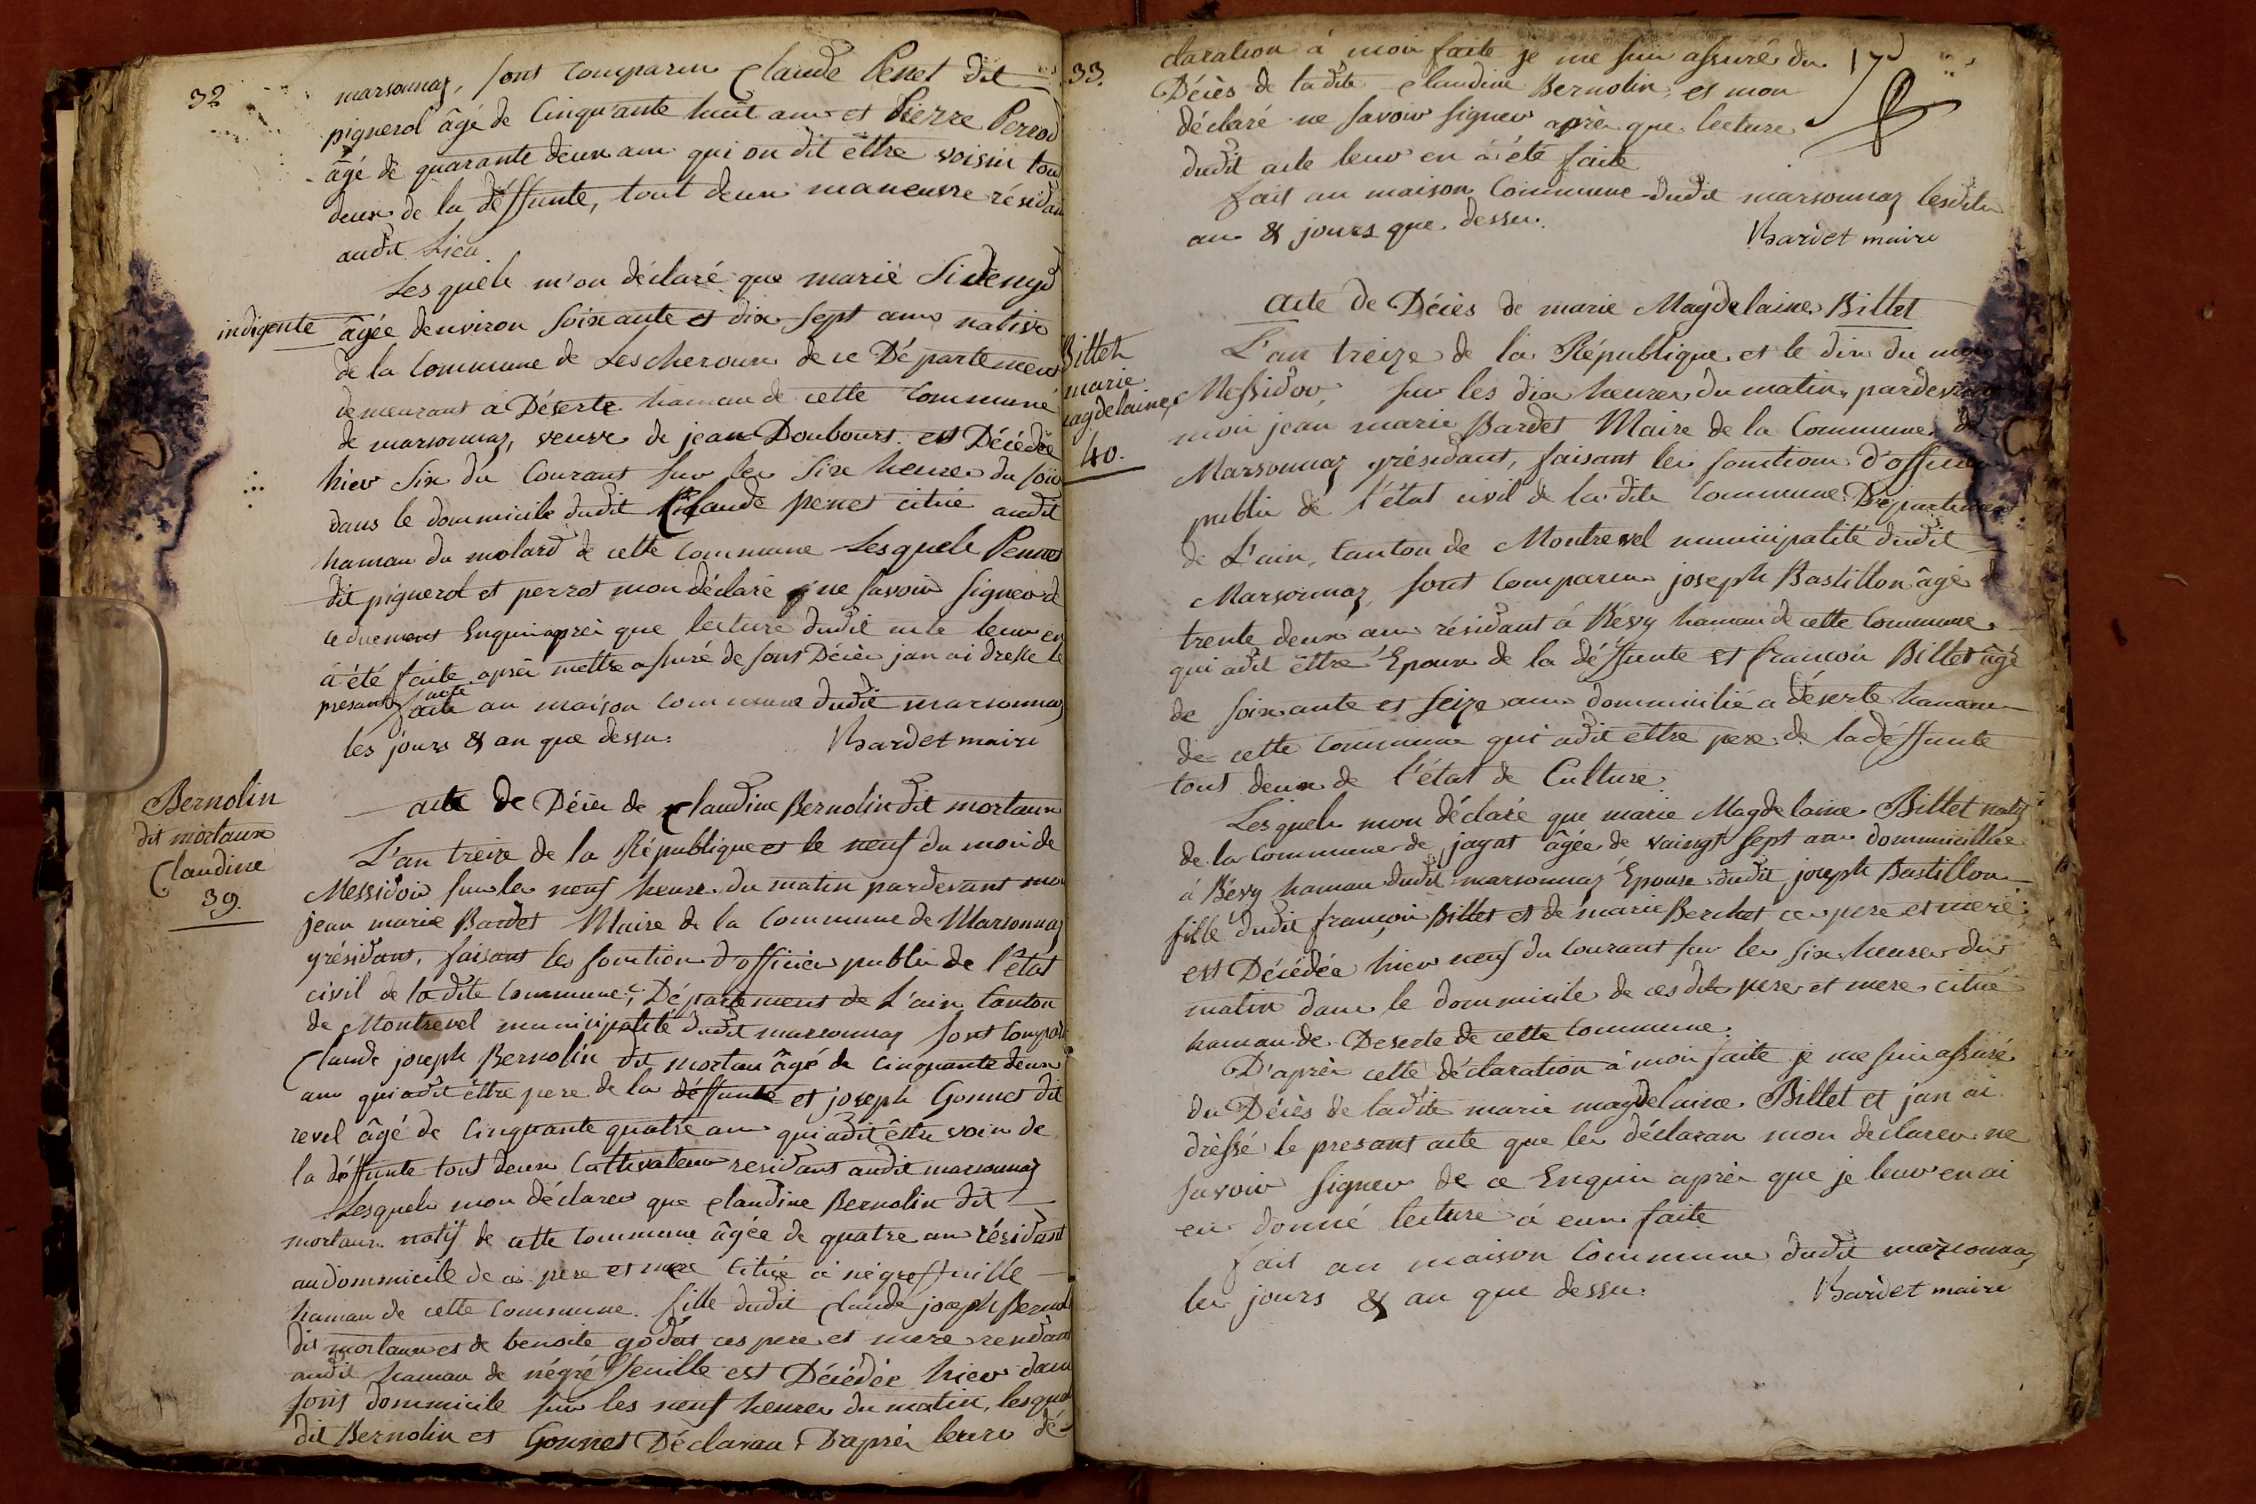 32
marsonnaz, sont comparu Claude Penet dit
pignerol âgé de Cinquante huit ans et Pierre Perrod
âgé de quarante deux ans qui on dit êttre voisin tou
deux de la déffunte, tout deux maneuvre résidan
audit Lieu.
Lesquels m'on déclaré que marié
indigente
âgée denviron soixante et dix sept ans native
de la Commune de Lescheroux de ce Département
demeurant a Déserte hamau de cette Commune
de marsonnaz, veuve de jean Doubours est Décédée
hier six du Courant sur les six heures du soir
dans le dommicile dudit Claude penet citué audit
hamau du molard de cette Commune Lesquels Pennet
dit pignerol et perrot mon déclaré ne savoir signer de
ce duement Enquis après que lecture dudit acte leur en
à été faite après mettre assuré de sont Décès jan ai dressé le
presant acte
fait au maison Commune dudit marsonnaz
les jours & an que dessu.
Bardet maire
Bernolin
dit mortaux
Claudine
39.
acte de Décès de Claudine Bernolin dit mortaux
L'an treize de la République et le neuf du moi de
Messidor sur les neuf heures du matin pardevant moi
jean marie Bardet Maire de la Commune de Marsonnaz
y résidant, faisant les fonction d'officier public de l'état
civil de la dite Commune, Département de L'ain Canton
de Montrevel municipalité dudit marsonnaz sont Compar
Claude joseph Bernolin dit mortau âgé de cinquante deux
ans qui adit êttre pere de la déffunte et joseph Gonnet dit
revel âgé de Cinquante quatre ans qui adit êttre voin de
la déffunte tout deux Cultivateur residant audit marsonnaz
Lesquels mon déclarer que Claudine Bernolin dit
mortaux natif de cette Commune âgée de quatre an résidant
au dommicile de ces pere et mere citué a négreffeuille
hamau de cette Commune. fille dudit Claude joseph Bernol
dit mortaux et de benoite godat ces pere et mere residant
audit hamau de négré ffeuille est Décédée hier dans
sont dommicile sur les neuf heures du matin, lesquel
dit Bernolin et Gonnet Déclaran D'après leurs dé-
33.
claration à moi faite je me suis assuré du
Décès de ladite Claudine Bernolin, et mon
déclaré ne savoir signer après que lecture
dudit acte leur en à été faite
17
fait au maison Commune dudit marsonnaz lesdits
an & jours que dessu.
Bardet maire
acte de Décès de marie Magdelaine Billet
Billet
marie
magdelaine
40.
L'an treize de la République et le dix du moi
Messidor, sur les dix heures du matin, pardevant
moi jean marie Bardet Maire de la Commune de
Marsonnaz y résidant, faisant les fonction d'officier
public de l'état civil de la dite Commune Département
de L'ain, Canton de Montrevel municipalité dudit
Marsonnaz, sont Comparu joseph Bastillon âgé de
trente deux ans résidant à Bévy hamau de cette Commune
qui adit êttre Epoux de la déffunte et françois Billet âgé
de soixante et seize ans dommicilié a déserte hamau
de cette Commune qui adit êttre pere de la déffunte
tout deux de l'état de Culture.
Lesquels mon déclaré que marie Magdelaine Billet natif
de la Commune de jayat âgée de vaingt sept ans dommiciliée
à Bévy hamau dudit marsonnaz Epouse dudit joseph Bastillon
fille dudit françois Billet et de marie Berchet ces pere et mere
est Décédée hier neuf du Courant sur les six heures du
matin dans le dommicile de ces dit pere et mere citué
hamau de Deserte de cette Commune.
D'après cette déclaration à moi faite je me suis assuré
du Décès de ladite marie magdelaine Billet et jan ai
dréssé le presant acte que les déclaran mon declarer ne
savoir signer de ce Enquis après que je leur en ai
eu donné lecture à eux faite
fait au maison Commune dudit marsonnaz
les jours & an que dessu.
Bardet maire